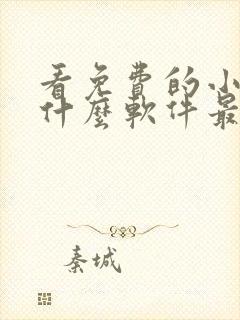 看免費的小
什麼軟件最
秦城